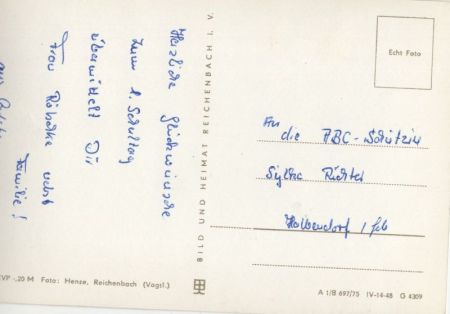 Herzliche Glückwünsche
zum 1. Schultag
übermittelt Dir
Frau nebst
Familie!
aus
BILD UND HEIMAT REICHENBACH I. V.
Echt Foto
An
die ABC-Schützin
Sylke Richter
EVP -,20 M Foto: Henze, Reichenbach (Vogtl.)
A 1/B 697/75 IV-14-48 G 4309